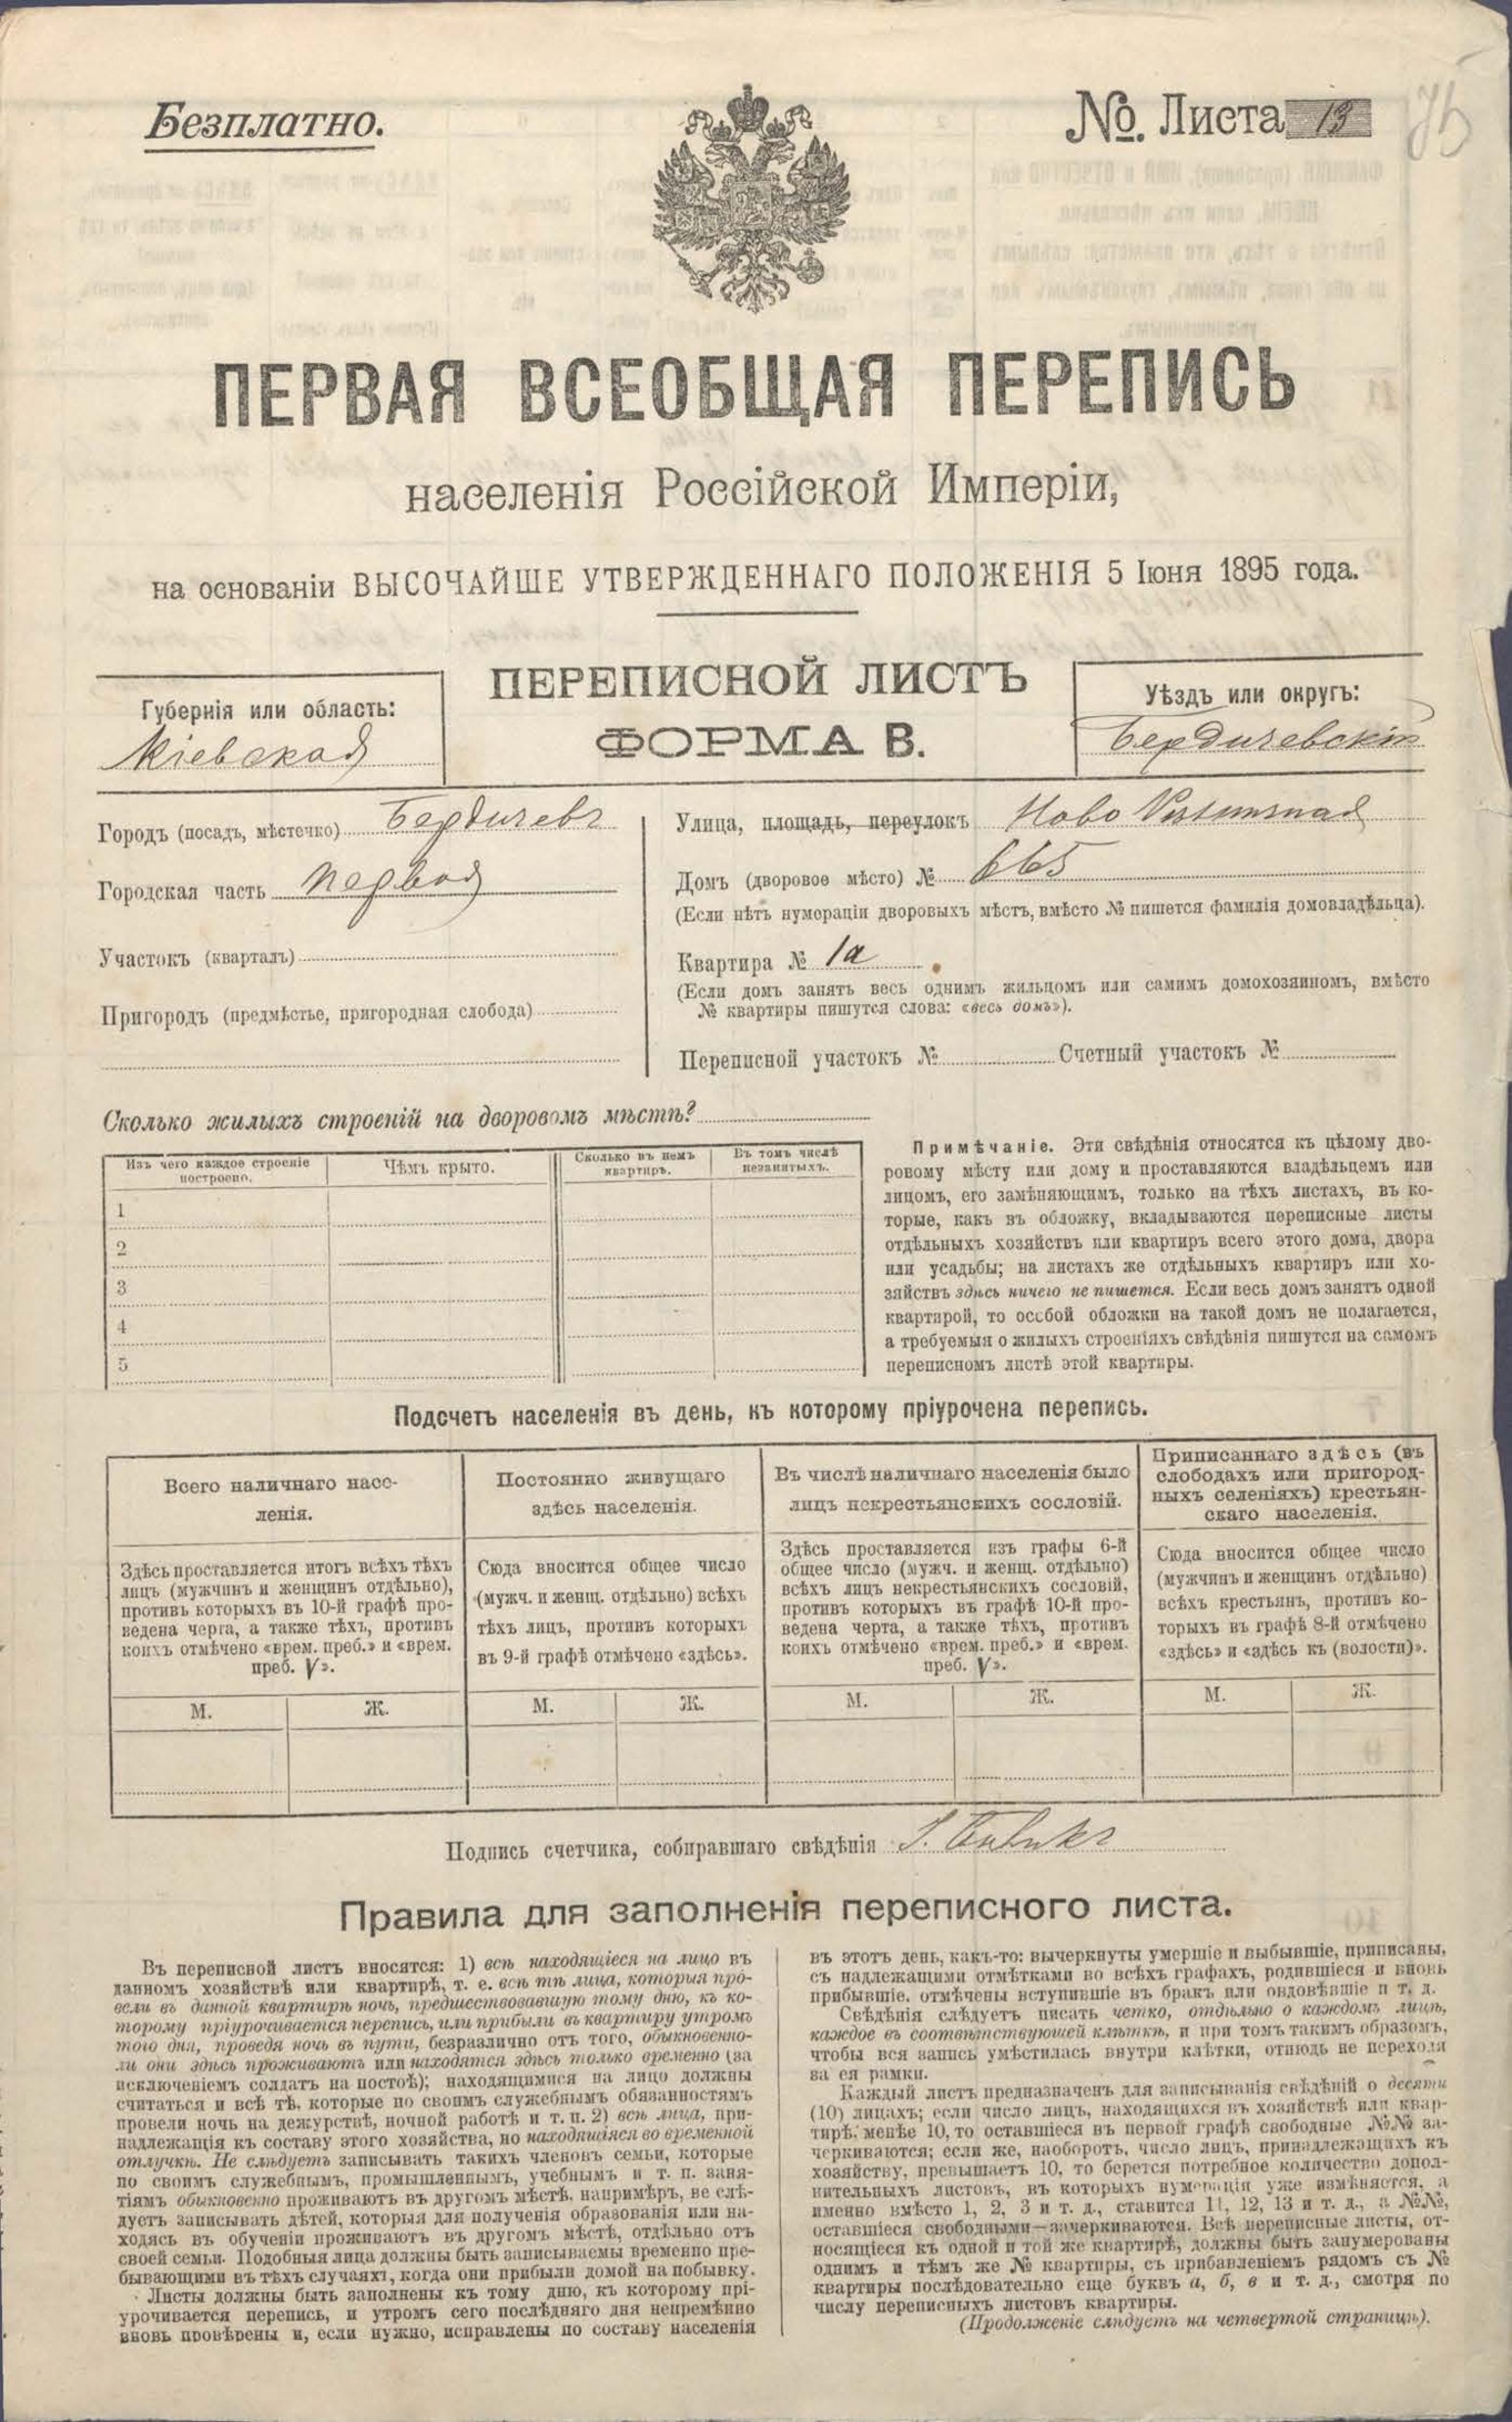 Безплатно.
№. Листа 13
75
ПЕРВАЯ ВСЕОБЩАЯ ПЕРЕПИСЬ
населенія Россійской Имперіи,
на основаніи ВЫСОЧАЙШЕ УТВЕРЖДЕННАГО ПОЛОЖЕНІЯ 5 Іюня 1895 года.
ПЕРЕПИСНОЙ ЛИСТЪ
ФОРМА В.
Губернія или область:
Кіевская
Уѣздъ или округъ:
Бердичевскій
Городъ (посадъ, мѣстечко) Бердичевъ
Городская часть первая
Участокъ (кварталъ)
Пригородъ (предмѣстье, пригородная слобода)
Улица, площадь, переулокъ Ново
Домъ (дворовое мѣсто) № 665
(Если нѣтъ нумераціи дворовыхъ мѣстъ, вмѣсто № пишется фамилія домовладѣльца).
Квартира № 1а
(Если домъ занятъ весь однимъ жильцомъ или самимъ домохозяиномъ, вмѣсто
№ квартиры пишутся слова: «весь домъ»).
Переписной участокъ № Счетный участокъ №
Сколько жилыхъ строеній на дворовомъ мѣстѣ?
Изъ чего каждое строеніе
построено.
Чѣмъ крыто.
Сколько въ немъ
квартиръ.
Въ томъ числѣ
незанятыхъ.
1
2
3
4
5
Примѣчаніе. Эти свѣдѣнія относятся къ цѣлому дво-
ровому мѣсту или дому и проставляются владѣльцемъ или
лицомъ, его замѣняющимъ, только на тѣхъ листахъ, въ ко-
торые, какъ въ обложку, вкладываются переписные листы
отдѣльныхъ хозяйствъ или квартиръ всего этого дома, двора
или усадьбы; на листахъ же отдѣльныхъ квартиръ или хо-
зяйствъ здѣсь ничего не пишется. Если весь домъ занятъ одной
квартирой, то особой обложки на такой домъ не полагается,
а требуемыя о жилыхъ строеніяхъ свѣдѣнія пишутся на самомъ
переписномъ листѣ этой квартиры.
Подсчетъ населенія въ день, къ которому пріурочена перепись.
Всего наличнаго насе-
ленія.
Здѣсь проставляется итогъ всѣхъ тѣхъ
лицъ (мужчинъ и женщинъ отдѣльно),
противъ которыхъ въ 10-й графѣ про-
ведена черта, а также тѣхъ, противъ
коихъ отмѣчено «врем. преб.» и «врем.
преб. V».
М. Ж.
Постоянно живущаго
здѣсь населенія.
Сюда вносится общее число
(мужч. и женщ. отдѣльно) всѣхъ
тѣхъ лицъ, противъ которыхъ
въ 9-й графѣ отмѣчено «здѣсь».
М. Ж.
Въ числѣ наличнаго населенія было
лицъ некрестьянскихъ сословій.
Здѣсь проставляется изъ графы 6-й
общее число (мужч. и женщ. отдѣльно)
всѣхъ лицъ некрестьянскихъ сословій,
противъ которыхъ въ графѣ 10-й про-
ведена черта, а также тѣхъ, противъ
коихъ отмѣчено «врем. преб.» и «врем.
преб. V».
М. Ж.
Приписаннаго здѣсь (въ
слободахъ или пригород-
ныхъ селеніяхъ) крестьян-
скаго населенія.
Сюда вносится общее число
(мужчинъ и женщинъ отдѣльно)
всѣхъ крестьянъ, противъ ко-
торыхъ въ графѣ 8-й отмѣчено
«здѣсь» и «здѣсь къ (волости)».
М. Ж.
Подпись счетчика, собиравшаго свѣдѣнія
Правила для заполненія переписного листа.
Въ переписной листъ вносятся: 1) всѣ находящіеся на лицо въ
данномъ хозяйствѣ или квартирѣ, т. е. всѣ тѣ лица, которыя про-
вели въ данной квартирѣ ночь, предшествовавшую тому дню, къ ко-
торому пріурочивается перепись, или прибыли въ квартиру утромъ
того дня, проведя ночь въ пути, безразлично отъ того, обыкновенно-
ли они здѣсь проживаютъ или находятся здѣсь только временно (за
исключеніемъ солдатъ на постоѣ); находящимися на лицо должны
считаться и всѣ тѣ, которые по своимъ служебнымъ обязанностямъ
провели ночь на дежурствѣ, ночной работѣ и т. п. 2) всѣ лица, при-
надлежащія къ составу этого хозяйства, но находящіяся во временной
отлучкѣ. Не слѣдуетъ записывать такихъ членовъ семьи, которые
по своимъ служебнымъ, промышленнымъ, учебнымъ и т. п. заня-
тіямъ обыкновенно проживаютъ въ другомъ мѣстѣ, напримѣръ, не слѣ-
дуетъ записывать дѣтей, которыя для полученія образованія или на-
ходясь въ обученіи проживаютъ въ другомъ мѣстѣ, отдѣльно отъ
своей семьи. Подобныя лица должны быть записываемы временно пре-
бывающими въ тѣхъ случаяхъ, когда они прибыли домой на побывку.
Листы должны быть заполнены къ тому дню, къ которому прі-
урочивается перепись, и утромъ сего послѣдняго дня непремѣнно
вновь провѣрены и, если нужно, исправлены по составу населенія
въ этотъ день, какъ-то: вычеркнуты умершіе и выбывшіе, приписаны,
съ надлежащими отмѣтками во всѣхъ графахъ, родившіеся и вновь
прибывшіе, отмѣчены вступившіе въ бракъ или овдовѣвшіе и т. д.
Свѣдѣнія слѣдуетъ писать четко, отдѣльно о каждомъ лицѣ,
каждое въ соотвѣтствующей клѣткѣ, и при томъ такимъ образомъ,
чтобы вся запись умѣстилась внутри клѣтки, отнюдь не переходя
за ея рамки.
Каждый листъ предназначенъ для записыванія свѣдѣній о десяти
(10) лицахъ; если число лицъ, находящихся въ хозяйствѣ или квар-
тирѣ, менѣе 10, то оставшіеся въ первой графѣ свободные №№ за-
черкиваются; если же, наоборотъ, число лицъ, принадлежащихъ къ
хозяйству, превышаетъ 10, то берется потребное количество допол-
нительныхъ листовъ, въ которыхъ нумерація уже измѣняется, а
именно вмѣсто 1, 2, 3 и т. д., ставится 11, 12, 13 и т. д., а №№,
оставшіеся свободными—зачеркиваются. Всѣ переписные листы, от-
носящіеся къ одной и той же квартирѣ, должны быть занумерованы
однимъ и тѣмъ же № квартиры, съ прибавленіемъ рядомъ съ №
квартиры послѣдовательно еще буквъ а, б, в и т. д., смотря по
числу переписныхъ листовъ квартиры.
(Продолженіе слѣдуетъ на четвертой страницѣ).